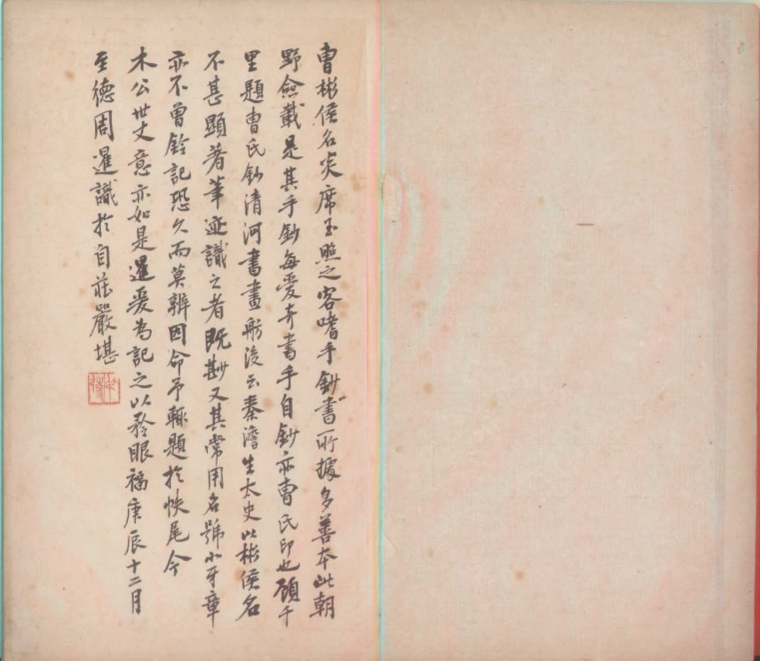 曹彬侯名炎席玉照之客嗜手鈔書所據多善本此朝
野僉載是其手鈔每愛奇書手自鈔亦曹氏印也顧千
里題曹氏鈔清河書畫舫後云秦澹生太史以彬侯名
不甚顯著筆迹識之者既尠又其常用名號小牙章
亦不曾鈐記恐久而莫辨因命予輒題於帙尾今
木公世丈意亦如是暹爰為記之以矜眼福庚辰十二月
至德周暹識於自莊嚴堪